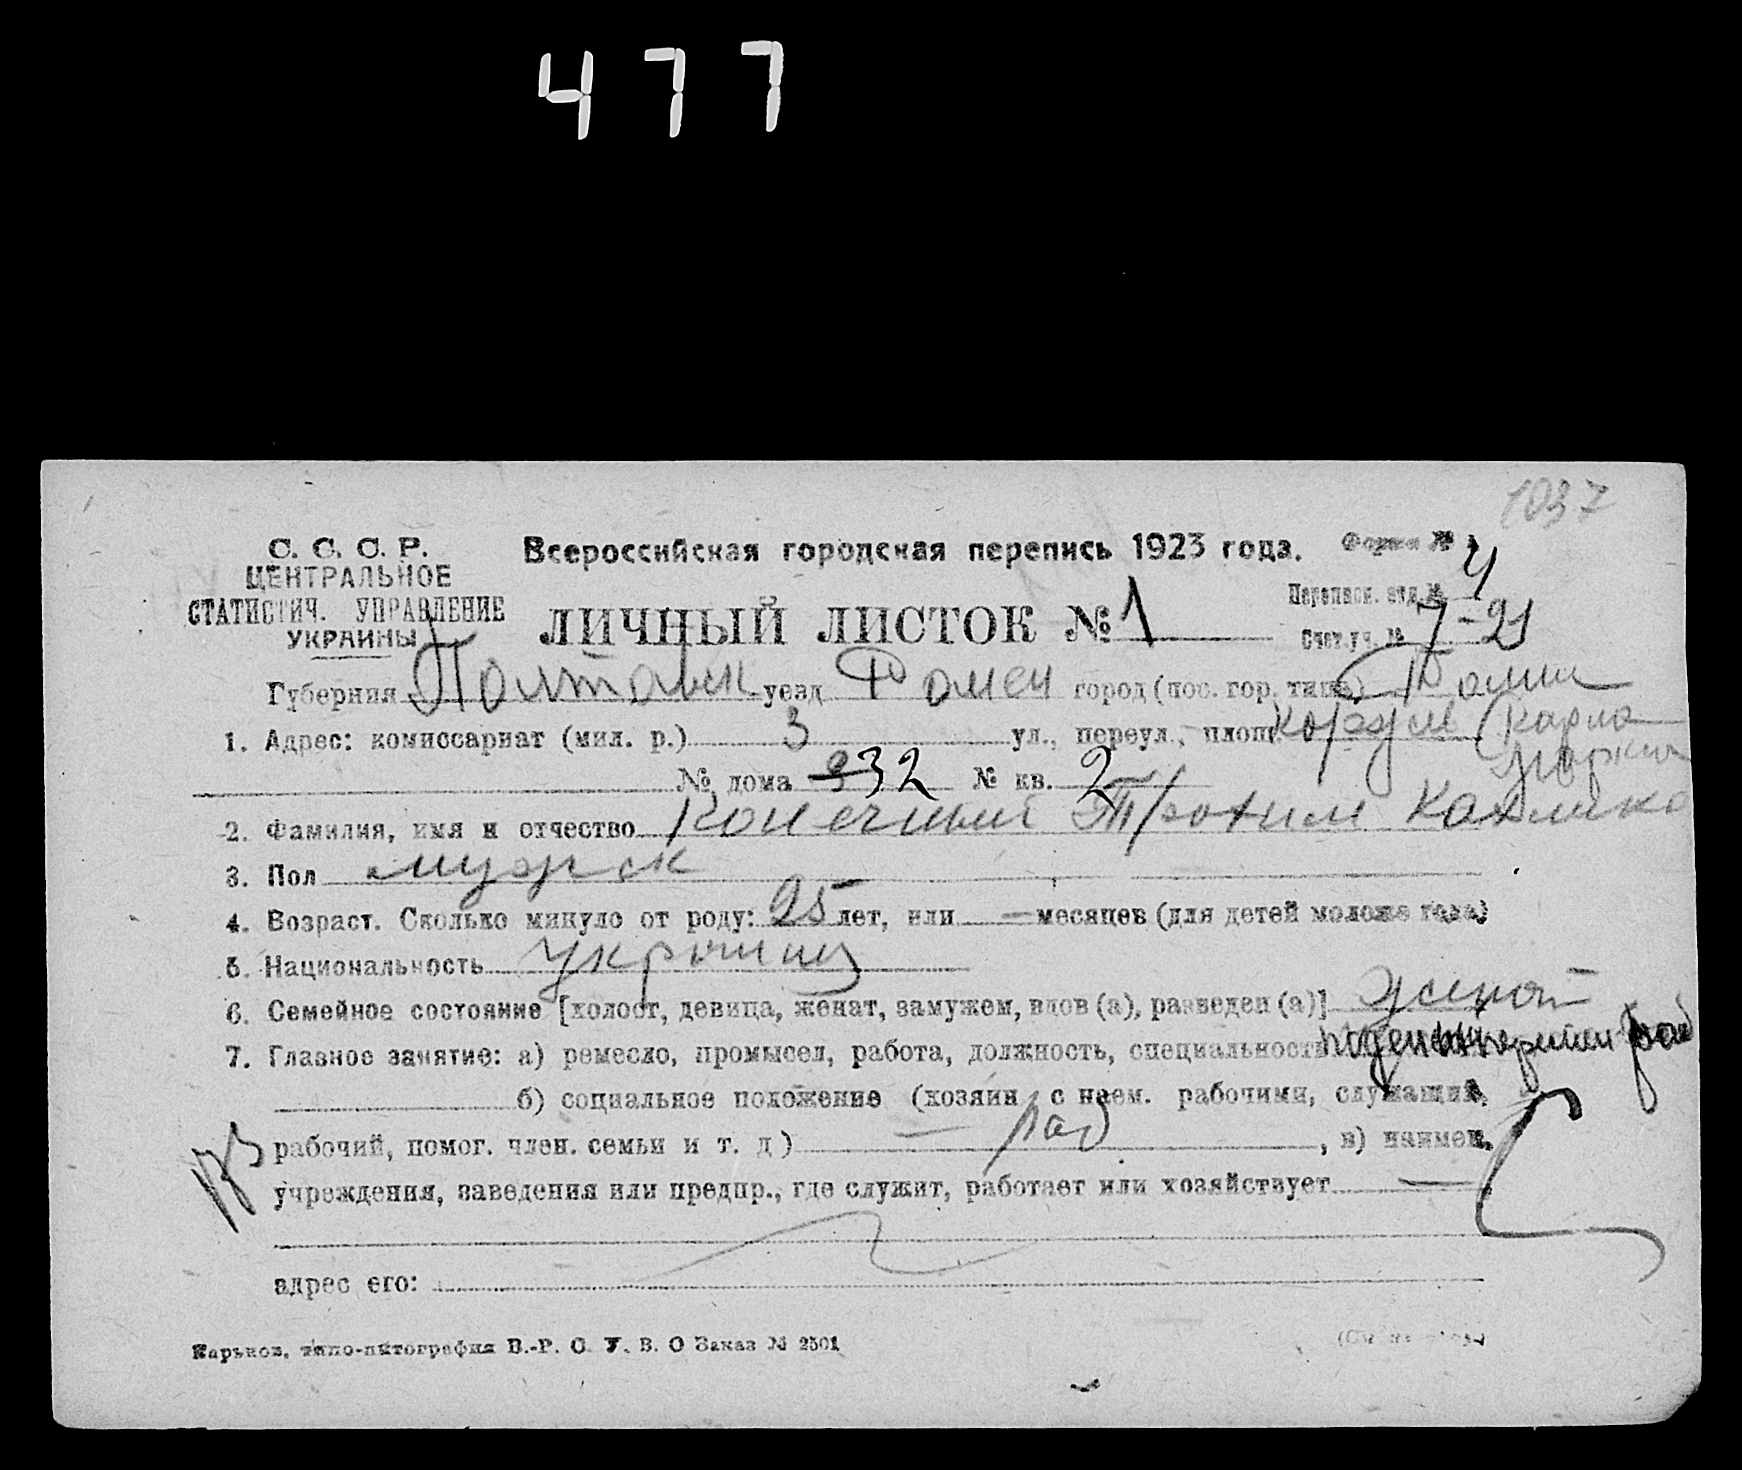 477
1037
С. С. С. Р.
ЦЕНТРАЛЬНОЕ
СТАТИСТИЧ. УПРАВЛЕНИЕ
УКРАИНЫ
Всероссийская городская перепись 1923 года.
Форма №
ЛИЧНЫЙ ЛИСТОК № 1
Переписн. отд. № 4
Счет. уч. № 7-21
Губерния Полтавск уезд Ромен город (пос. гор. типа) Ромны
1. Адрес: комиссариат (мил. р.) 3 ул., переул., площ. Карла
Маркса
№ дома 32 № кв. 2
2. Фамилия, имя и отчество Конечный Трохим
3. Пол мужск
4. Возраст. Сколько минуло от роду: 25 лет, или — месяцев (для детей моложе года)
5. Национальность украинец
6. Семейное состояние [холост, девица, женат, замужем, вдов (а), разведен (а)] женат
7. Главное занятие: а) ремесло, промысел, работа, должность, специальность
б) социальное положение (хозяин с наем. рабочими, служащий,
рабочий, помог. член. семьи и т. д) — раб , в) наимен.
учреждения, заведения или предпр., где служит, работает или хозяйствует —
адрес его:
Харьков, типо-литография В.-Р. С. У. В. О Заказ № 2501